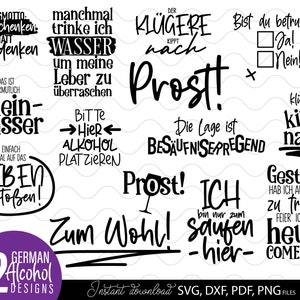 MOTTO:
schenken
STATT
denken
manchmal
trinke ich
WASSER
um meine
Leber zu
überraschen
DER
KLÜGERE
KIPPT
nach
Prost!
Bist du betru
Ja!
Nein!
DAS IST
VERMUTLICH
ein-
asser
BITTE
Hier
ALKOHOL
PLATZIEREN
Die Lage ist
BESÄUFNISERREGEND
EINFACH
AL AUF DAS
BEN
toßen!
Prost!
Zum Wohl!
ICH
bin nur zum
saufen
-hier-
Gest
hab ich
zu
FEIER ICH
heu
COME
2 GERMAN
Alcohol
DESIGNS
Instant download SVG, DXF, PDF, PNG